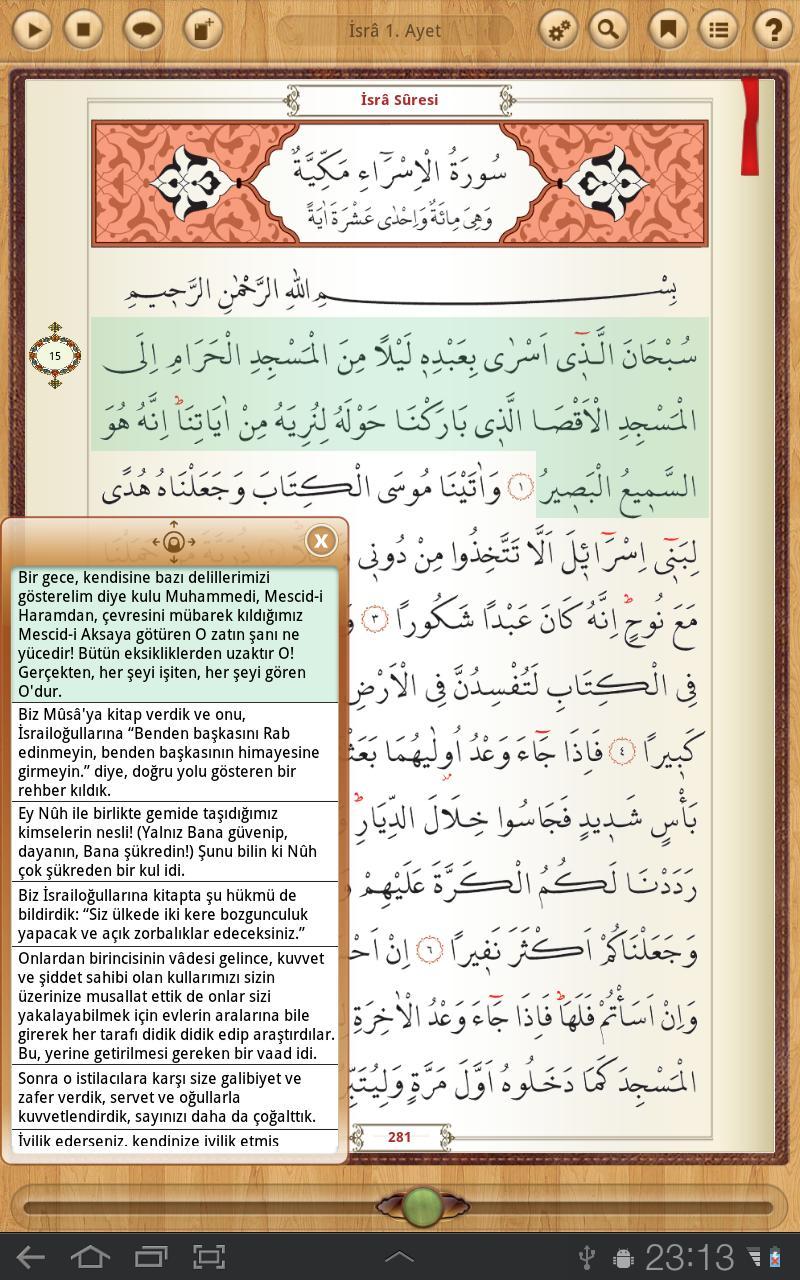 İsrâ 1. Ayet
?
İsrâ Sûresi
سُورَةُ الْاِسْرَٓاءِ مَكِّيَّةٌ
وَهِيَ مِائَةٌ وَاِحْدٰى عَشْرَةَ اٰيَةً
بِسْمِ اللهِ الرَّحْمٰنِ الرَّحِيمِ
15
سُبْحَانَ الَّذِٓى اَسْرٰى بِعَبْدِهِ لَيْلًا مِنَ الْمَسْجِدِ الْحَرَامِ اِلَى
الْمَسْجِدِ الْاَقْصَا الَّذِى بَارَكْنَا حَوْلَهُ لِنُرِيَهُ مِنْ اٰيَاتِنَاۜ اِنَّهُ هُوَ
السَّمِيعُ الْبَصِيرُ ١ وَاٰتَيْنَا مُوسَى الْكِتَابَ وَجَعَلْنَاهُ هُدًى
لِبَنِٓى اِسْرَٓائِلَ اَلَّا تَتَّخِذُوا مِنْ دُونِى
مَعَ نُوحٍۜ اِنَّهُ كَانَ عَبْدًا شَكُورًا ٣
فِى الْكِتَابِ لَتُفْسِدُنَّ فِى الْاَرْضِ
كَبِيرًا ٤ فَاِذَا جَٓاءَ وَعْدُ اُو۫لٰيهُمَا
بَأْسٍ شَدِيدٍ فَجَاسُوا خِلَالَ الدِّيَارِۜ
رَدَدْنَا لَكُمُ الْكَرَّةَ عَلَيْهِمْ
وَجَعَلْنَاكُمْ اَكْثَرَ نَفِيرًا ٦ اِنْ
وَاِنْ اَسَأْتُمْ فَلَهَاۜ فَاِذَا جَٓاءَ وَعْدُ الْاٰخِرَةِ
الْمَسْجِدَ كَمَا دَخَلُوهُ اَوَّلَ مَرَّةٍ
X
Bir gece, kendisine bazı delillerimizi
gösterelim diye kulu Muhammedi, Mescid-i
Haramdan, çevresini mübarek kıldığımız
Mescid-i Aksaya götüren O zatın şanı ne
yücedir! Bütün eksikliklerden uzaktır O!
Gerçekten, her şeyi işiten, her şeyi gören
O'dur.
Biz Mûsâ'ya kitap verdik ve onu,
İsrailoğullarına “Benden başkasını Rab
edinmeyin, benden başkasının himayesine
girmeyin.” diye, doğru yolu gösteren bir
rehber kıldık.
Ey Nûh ile birlikte gemide taşıdığımız
kimselerin nesli! (Yalnız Bana güvenip,
dayanın, Bana şükredin!) Şunu bilin ki Nûh
çok şükreden bir kul idi.
Biz İsrailoğullarına kitapta şu hükmü de
bildirdik: “Siz ülkede iki kere bozgunculuk
yapacak ve açık zorbalıklar edeceksiniz.”
Onlardan birincisinin vâdesi gelince, kuvvet
ve şiddet sahibi olan kullarımızı sizin
üzerinize musallat ettik de onlar sizi
yakalayabilmek için evlerin aralarına bile
girerek her tarafı didik didik edip araştırdılar.
Bu, yerine getirilmesi gereken bir vaad idi.
Sonra o istilacılara karşı size galibiyet ve
zafer verdik, servet ve oğullarla
kuvvetlendirdik, sayınızı daha da çoğalttık.
İyilik ederseniz, kendinize iyilik etmiş
281
23:13